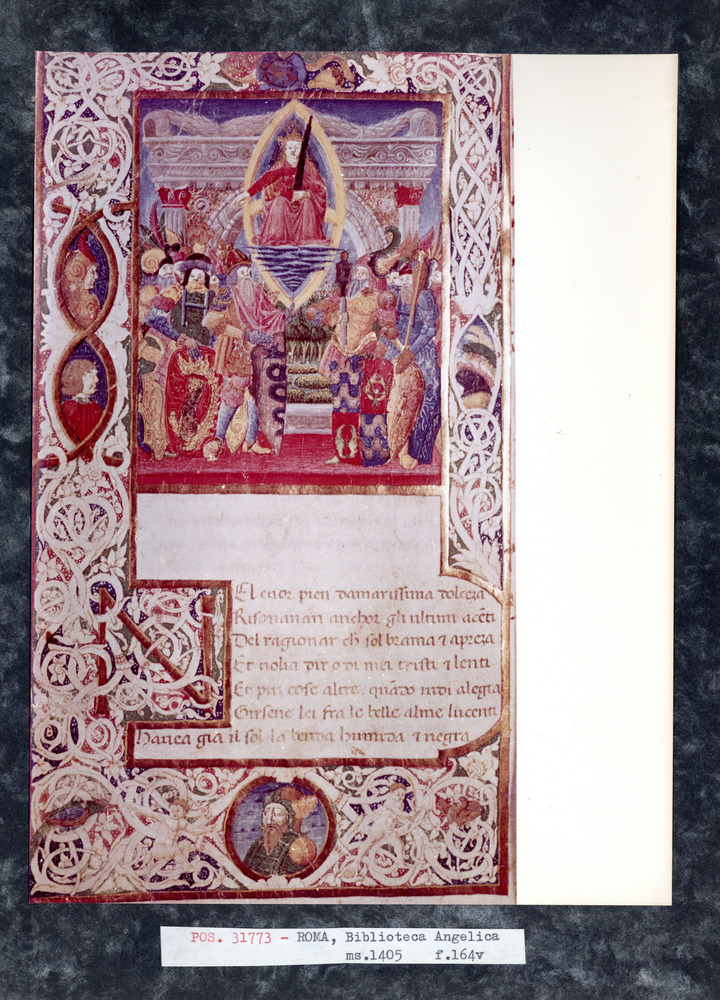 NEl cuor pien damarissima dolceza
Risonauan anchor gli ultimi acēti
Del ragionar ch sol brama 7 apreza
Et uolia dir o di mei tristi 7 lenti
Et piu cose altre. quādo uidi alegra
Girsene lei fra le belle alme lucenti
Hauea gia il sol la benda humida 7 negra
POS. 31773 - ROMA, Biblioteca Angelica
ms.1405 f.164v